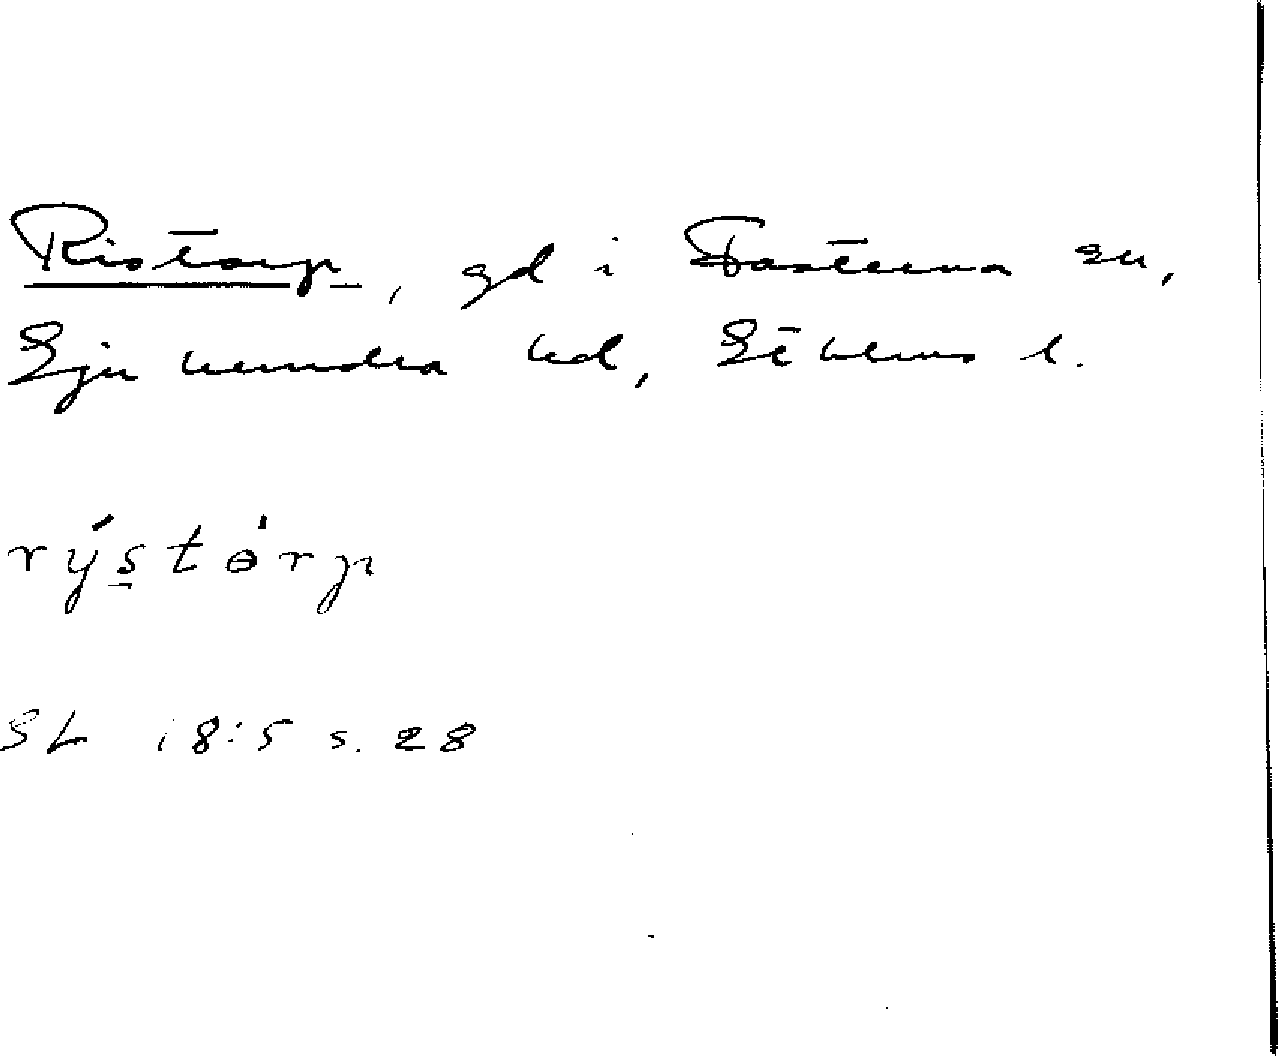 Ristorp, gd i Fasterna sn,
Sjuhundra hd, Sthlms l.
rýs̱tɵ́rp
SL 18:5 s. 28